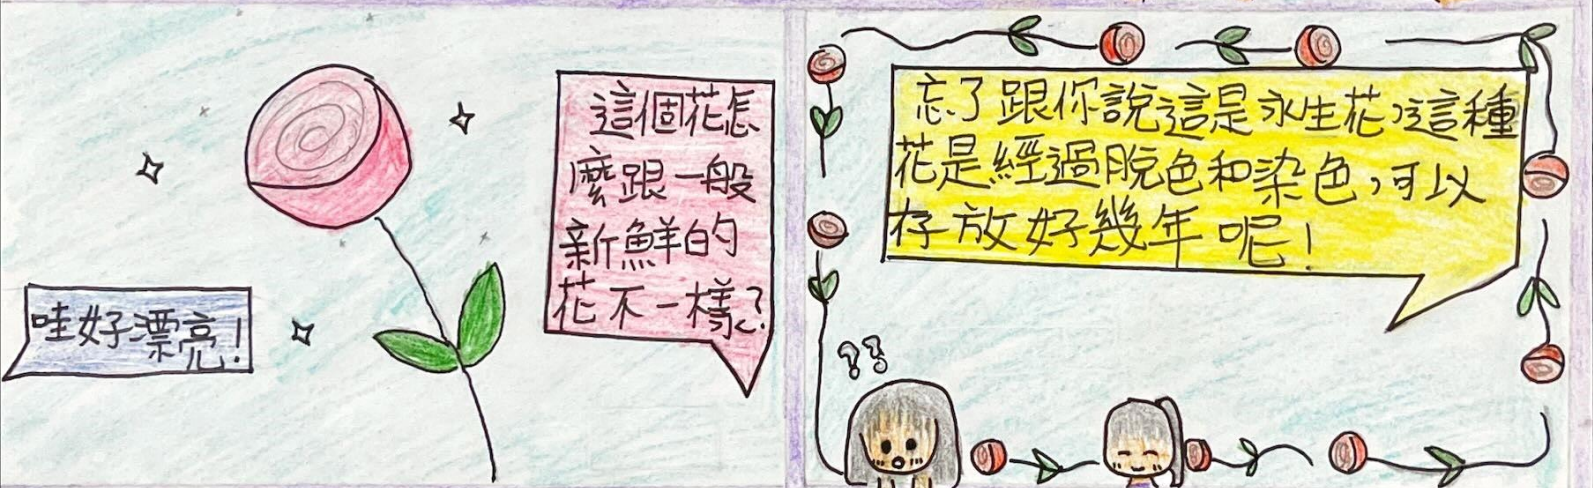 哇好漂亮!
這個花怎
麼跟一般
新鮮的
花不一樣?
忘了跟你說這是永生花,這種
花是經過脫色和染色,可以
存放好幾年呢!
??